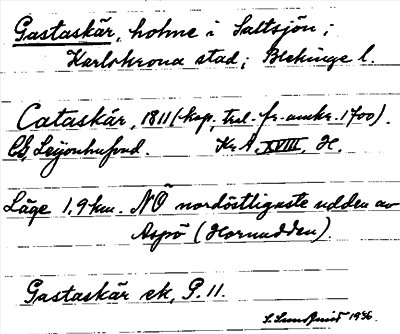 Gastaskär, holme i Saltsjön;
Karlskrona stad; Blekinge l.
Cataskär, 1811 (kop, trol. fr. omkr. 1700).
CG, Leijonhufvud. Kr. A. XVIII, H.
Läge 1,9 km. NÖ nordöstligaste udden av
Aspö (Hornudden).
Gastaskär ek, P. 11.
1936